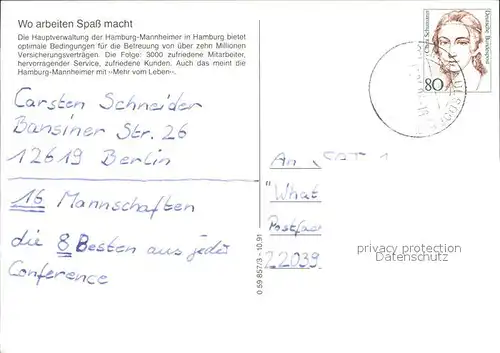 Wo arbeiten Spaß macht
Die Hauptverwaltung der Hamburg-Mannheimer in Hamburg bietet
optimale Bedingungen für die Betreuung von über zehn Millionen
Versicherungsverträgen. Die Folge: 3000 zufriedene Mitarbeiter,
hervorragender Service, zufriedene Kunden. Auch das meint die
Hamburg-Mannheimer mit »Mehr vom Leben«.
Clara Schumann
Deutsche Bundespost
80
Carsten Schneider
Bansiner Str. 26
12619 Berlin
16 Mannschaften
die 8 Besten aus jeder
Conference
An SAT 1
"What
Postfac
22039
privacy protection
Datenschutz
0 59 857/3 - 10.91